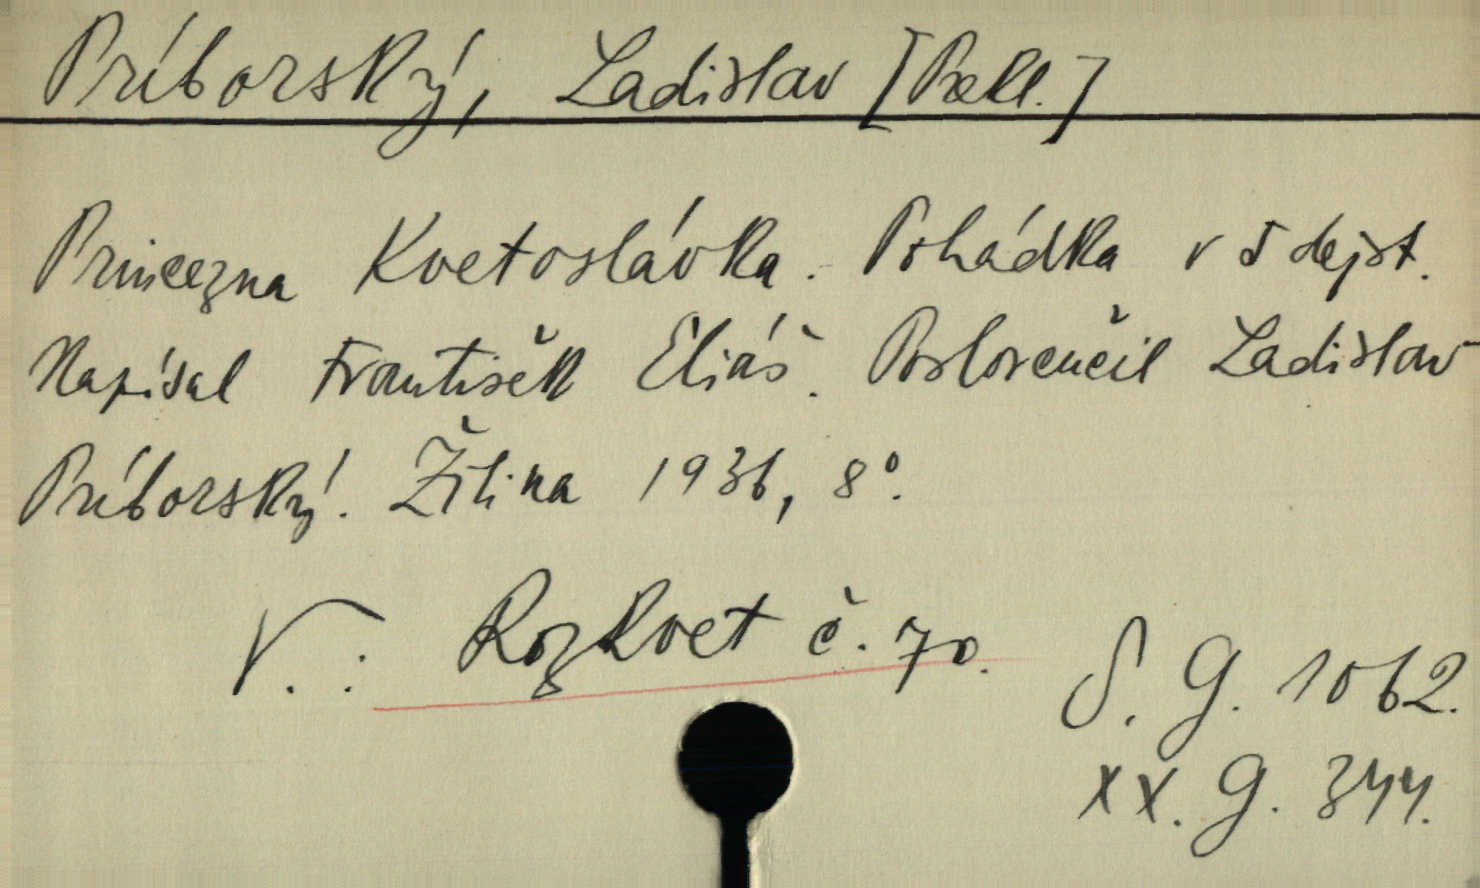 Príborský, Ladislav [Prekl.]
Princezna Kvetoslávka. Pohádka v 5 dejst.
Napísal František Eliáš. Poslovenčil Ladislav
Príborský. Žilina 1936, 8°.
V.: Rozkvet č. 70.
S. G. 1062.
XX. G. 344.